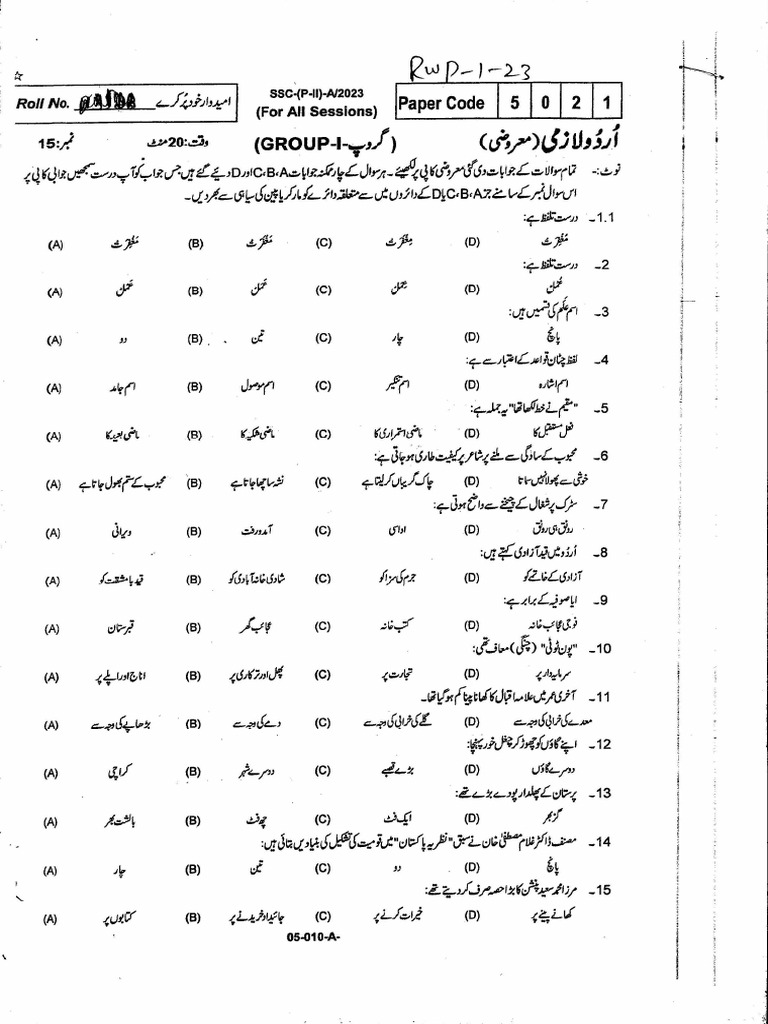 RWP-1-23
Roll No. امیدوار خود پُر کرے
SSC-(P-II)-A/2023
(For All Sessions)
Paper Code 5 0 2 1
اُردو لازمی (معروضی) (گروپ-GROUP-I) وقت: 20 منٹ نمبر: 15
نوٹ:- تمام سوالات کے جوابات دی گئی معروضی کاپی پر لکھیئے۔ ہر سوال کے چار ممکنہ جوابات C،B،A اور D دیئے گئے ہیں جس جواب کو آپ درست سمجھیں جوابی کاپی پر
اس سوال نمبر کے سامنے جز C،B،A یا D کے دائروں میں سے متعلقہ دائرے کو مارکر یا پین کی سیاہی سے بھر دیں۔
1.1۔ درست تلفظ ہے:
(A) مغفرت (B) مغفرت (C) مغفرت (D) مغفرت
2۔ درست تلفظ ہے:
(A) (B) (C) (D)
3۔ اسم عَلَم کی قسمیں ہیں:
(A) دو (B) تین (C) چار (D) پانچ
4۔ لفظ چٹان قواعد کے اعتبار سے ہے:
(A) اسم جامد (B) اسم موصول (C) اسم تکبیر (D) اسم اشارہ
5۔ "مقیم نے خط لکھا تھا" یہ جملہ ہے:
(A) ماضی بعید کا (B) ماضی شکیہ کا (C) ماضی استمراری کا (D) فعل مستقبل کا
6۔ محبوب کے سادگی سے ملنے پر شاعر پر کیفیت طاری ہو جاتی ہے:
(A) محبوب کے ستم بھول جاتا ہے (B) نشہ سا چھا جاتا ہے (C) چاک گریباں کر لیتا ہے (D) خوشی سے پھولا نہیں سماتا
7۔ سڑک پر شغال کے چیخنے سے واضح ہوتی ہے:
(A) ویرانی (B) آمدورفت (C) اداسی (D) رونق ہی رونق
8۔ اُردو میں قید آزادی کہتے ہیں:
(A) قید با مشقت کو (B) شادی خانہ آبادی کو (C) جرم کی سزا کو (D) آزادی کے خاتمے کو
9۔ ایا صوفیہ کے برابر ہے:
(A) قبرستان (B) عجائب گھر (C) کتب خانہ (D) فوجی عجائب خانہ
10۔ "پون ٹوٹی" (چنگی) معاف تھی:
(A) اناج اور اپلے پر (B) پھل اور ترکاری پر (C) تجارت پر (D) سرمایہ دار پر
11۔ آخری عمر میں علامہ اقبال کا کھانا پینا کم ہو گیا تھا۔
(A) بڑھاپے کی وجہ سے (B) دمے کی وجہ سے (C) گلے کی خرابی کی وجہ سے (D) معدے کی خرابی کی وجہ سے
12۔ اپنے گاؤں کو چھوڑ کر چغل خور پہنچا:
(A) کراچی (B) دوسرے شہر (C) بڑے قصبے (D) دوسرے گاؤں
13۔ پرستان کے پھلدار پودے بڑے تھے:
(A) بالشت بھر (B) چھ فٹ (C) ایک فٹ (D) گز بھر
14۔ مصنف ڈاکٹر غلام مصطفیٰ خان نے سبق "نظریہ پاکستان" میں قومیت کی تشکیل کی بنیادیں بتائی ہیں:
(A) چار (B) تین (C) دو (D) پانچ
15۔ مرزا محمد سعید پنشن کا بڑا حصہ صرف کر دیتے تھے:
(A) کتابوں پر (B) جائیداد خریدنے پر (C) خیرات کرنے پر (D) کھانے پینے پر
05-010-A-